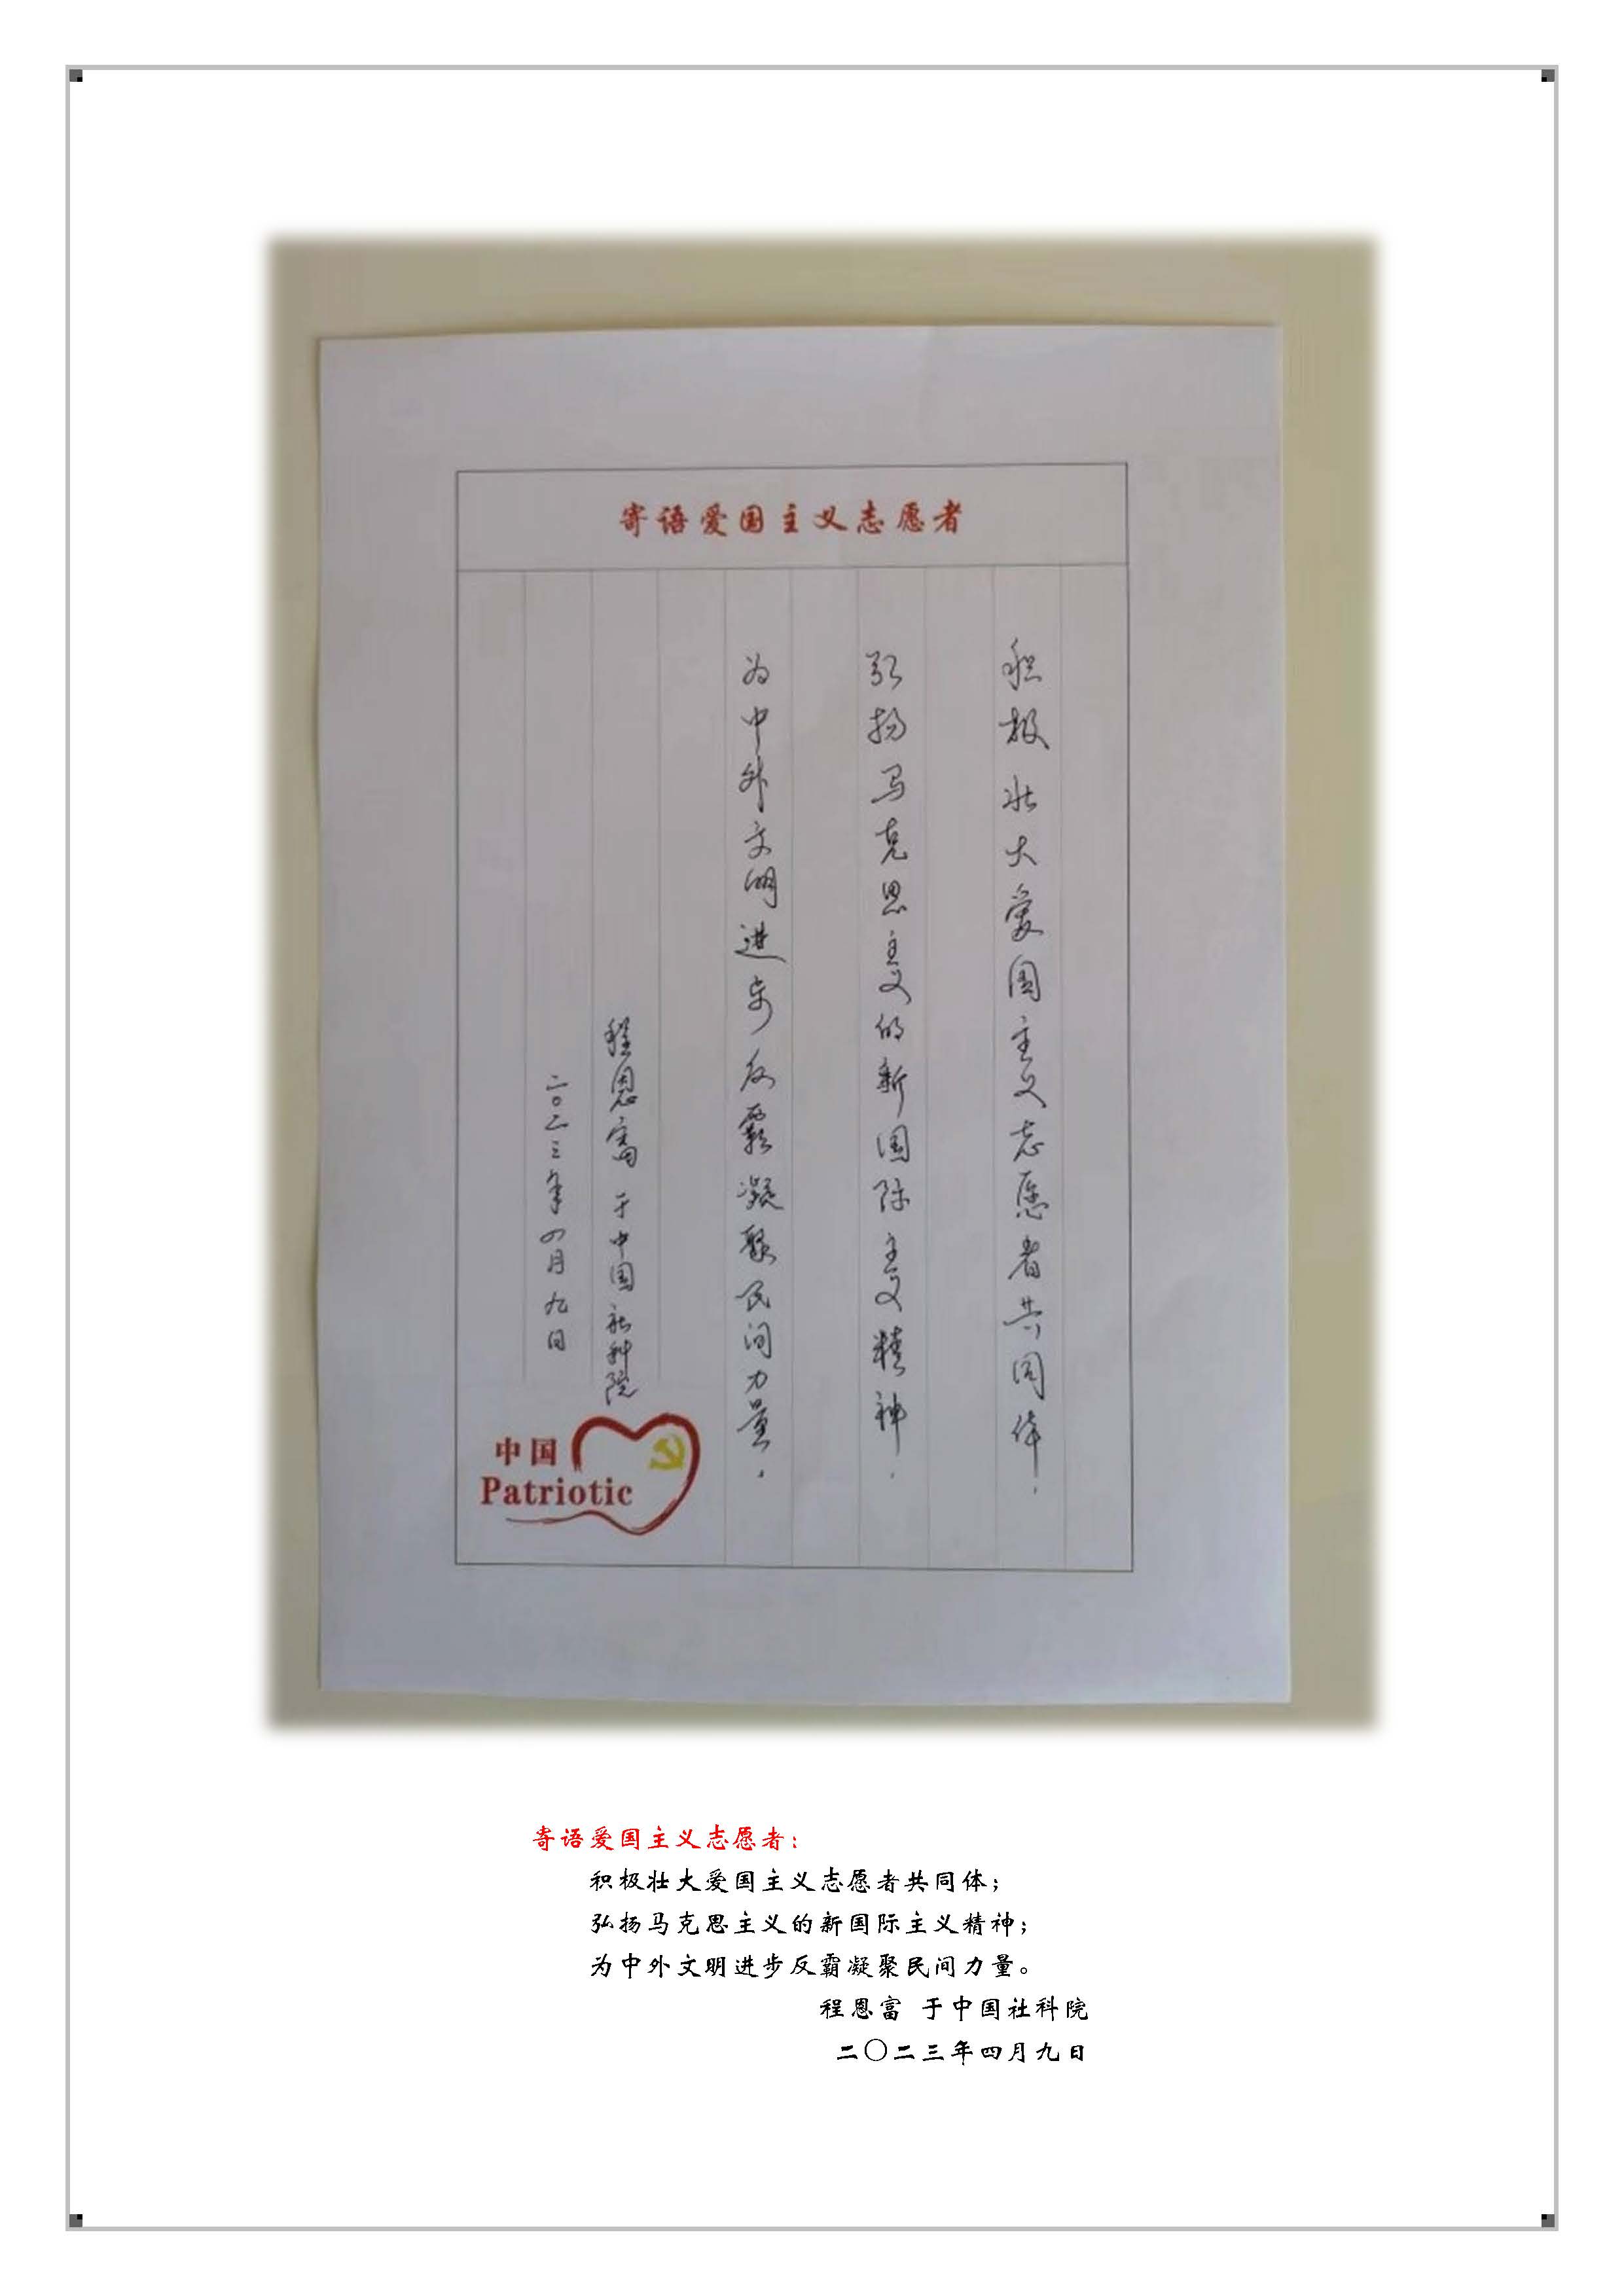 寄语爱国主义志愿者
积极壮大爱国主义志愿者共同体.
弘扬马克思主义的新国际主义精神.
为中外文明进步反霸凝聚民间力量.
程恩富 于中国社科院
二〇二三年四月九日
中国
Patriotic
寄语爱国主义志愿者：
积极壮大爱国主义志愿者共同体；
弘扬马克思主义的新国际主义精神；
为中外文明进步反霸凝聚民间力量。
程恩富 于中国社科院
二〇二三年四月九日